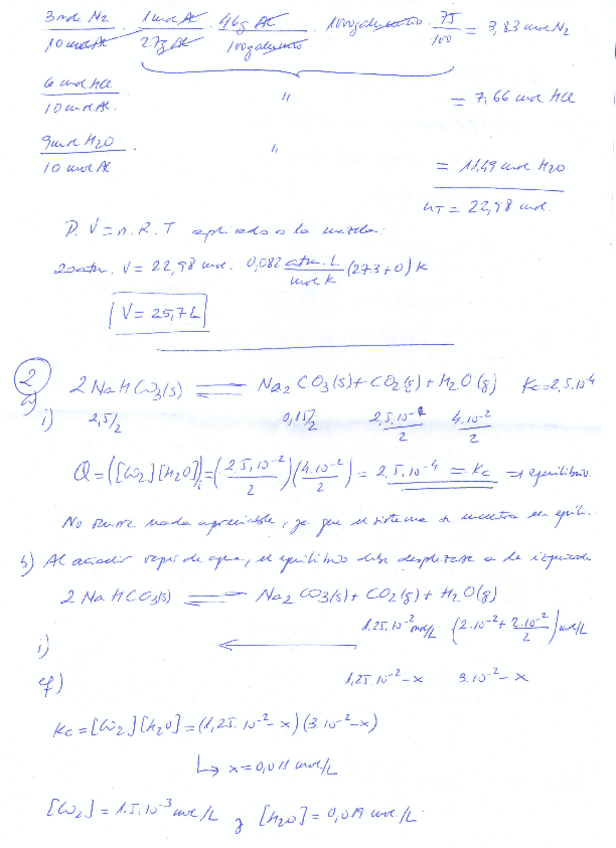 3 mol N2 / 10 mol Al · 1 mol Al / 27g Al · 46g Al / 100g alimento · 1000g alimento · 75 / 100 = 3,83 mol N2
6 mol HCl / 10 mol Al · " = 7,66 mol HCl
9 mol H2O / 10 mol Al · " = 11,49 mol H2O
nT = 22,98 mol.
P. V = n. R. T aplicado a la mezcla:
20 atm. V = 22,98 mol. 0,082 atm. L / mol K (273+0) K
V = 25,7 L
2
a) 2 NaHCO3(s) ⇌ Na2CO3(s) + CO2(g) + H2O(g) Kc=2,5.10-4
i) 2,5/2 0,15/2 2,5.10-2/2 4.10-2/2
Q = ([CO2][H2O])i = (2,5.10-2/2)(4.10-2/2) = 2,5.10-4 = Kc → equilibrio
No ocurre nada apreciable, ya que el sistema se encuentra en equili.
b) Al añadir vapor de agua, el equilibrio debe desplazarse a la izquierda
2 NaHCO3(s) ⇌ Na2CO3(s) + CO2(g) + H2O(g)
i) 1,25.10-2 mol/L (2.10-2 + 2.10-2/2) mol/L
←
eq) 1,25.10-2-x 3.10-2-x
Kc = [CO2][H2O] = (1,25.10-2-x)(3.10-2-x)
↳ x=0,011 mol/L
[CO2] = 1,5.10-3 mol/L y [H2O] = 0,019 mol/L.